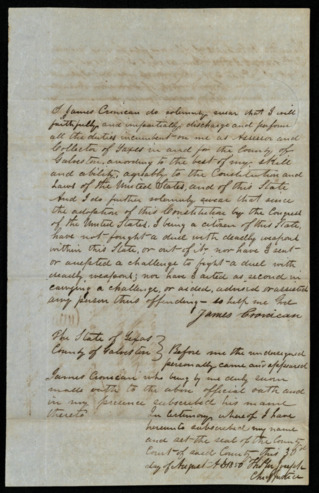 I James Cronican do solemnly swear that I will
faithfully and impartially discharge and perform
all the duties incumbent on me as Assessor and
Collector of Taxes in and for the County of
Galveston, according to the best of my skill
and ability, agreeably to the Constitution and
Laws of the United States, and of this State
And I do further solemnly swear that since
the adoption of this Constitution by the Congress
of the United States. I being a citizen of this State
have not fought a duel with deadly weapons
within this State, or out of it, nor have I sent
or accepted a challenge to fight a duel with
deadly weapons; nor have I acted as second in
carrying a challenge, or aided, advised or assisted
any person thus offending — so help me God
James Cronican
The State of Texas
County of Galveston } Before me the undersigned
personally came and appeared
James Cronican who being by me duly sworn
made oath to the above official oath and
in my presence subscribed his name
thereto
In testimony whereof I have
hereunto subscribed my name
and set the seal of the County
Court of said County this
day of August A.D.
Chief Justice